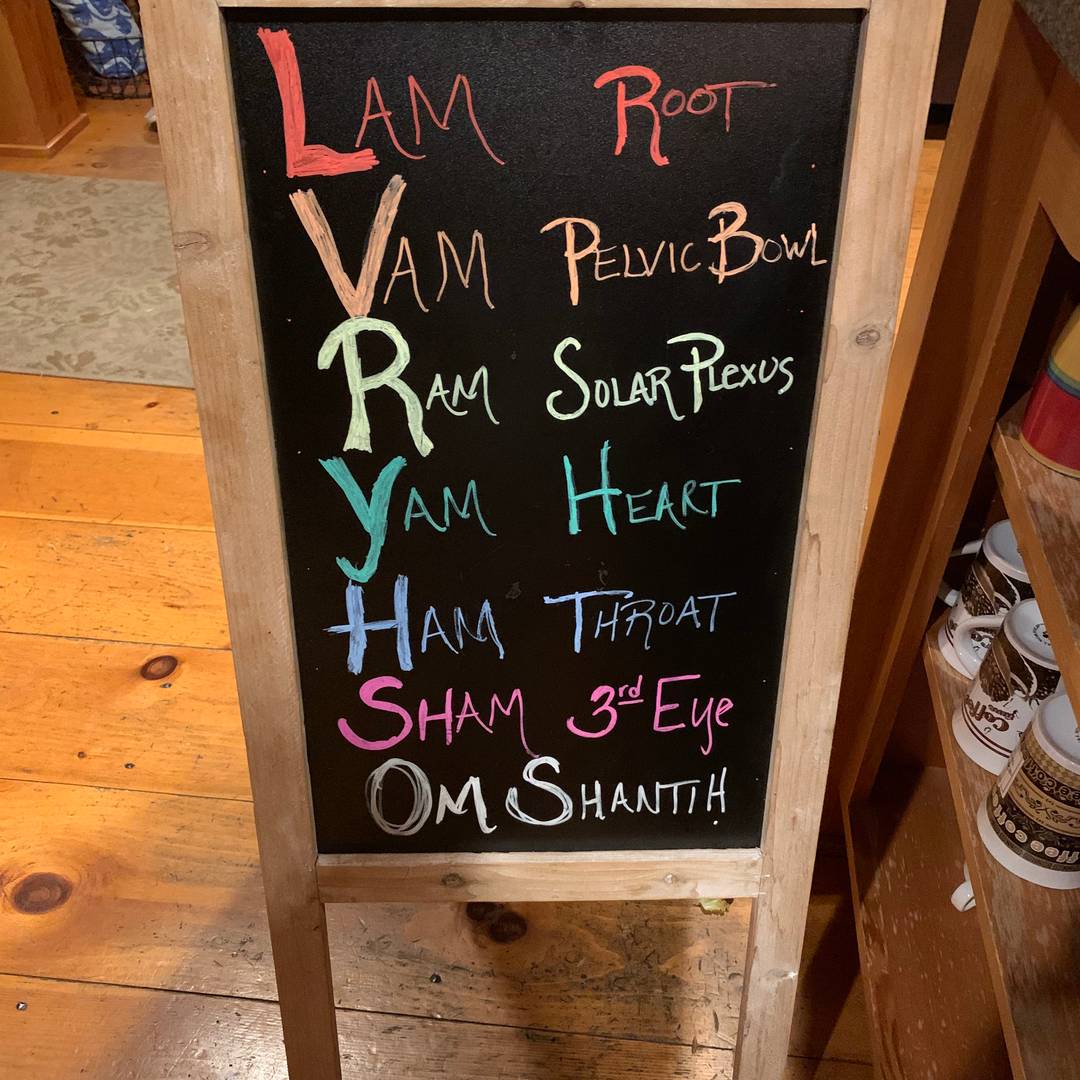 LAM ROOT
VAM PELVIC BOWL
RAM SOLAR PLEXUS
YAM HEART
HAM THROAT
SHAM 3rd Eye
OM SHANTIḤ
Coffee
coffee